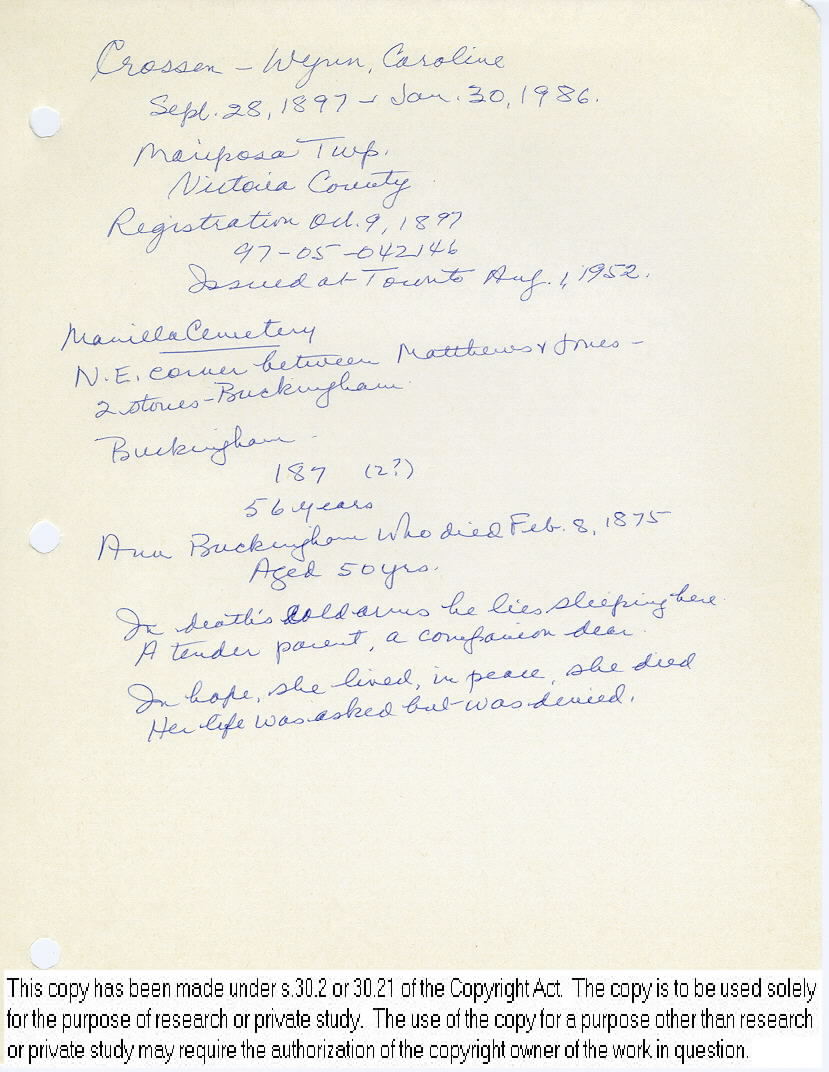 Crossen - Wynn, Caroline
Sept. 28, 1897 - Jan. 30, 1986.
Mariposa Twp.
Victoria County
Registration Oct. 9, 1897
97-05-042146
Issued at Toronto Aug. 1, 1952.
Manilla Cemetery
N.E. corner between Matthews & Jones -
2 stones - Buckingham
Buckingham
187 (2?)
56 years
Ann Buckingham who died Feb. 8, 1875
Aged 50 yrs.
In death's cold arms he lies sleeping here
A tender parent, a companion dear.
In hope, she lived, in peace, she died
Her life was asked but was denied.
This copy has been made under s.30.2 or 30.21 of the Copyright Act. The copy is to be used solely
for the purpose of research or private study. The use of the copy for a purpose other than research
or private study may require the authorization of the copyright owner of the work in question.